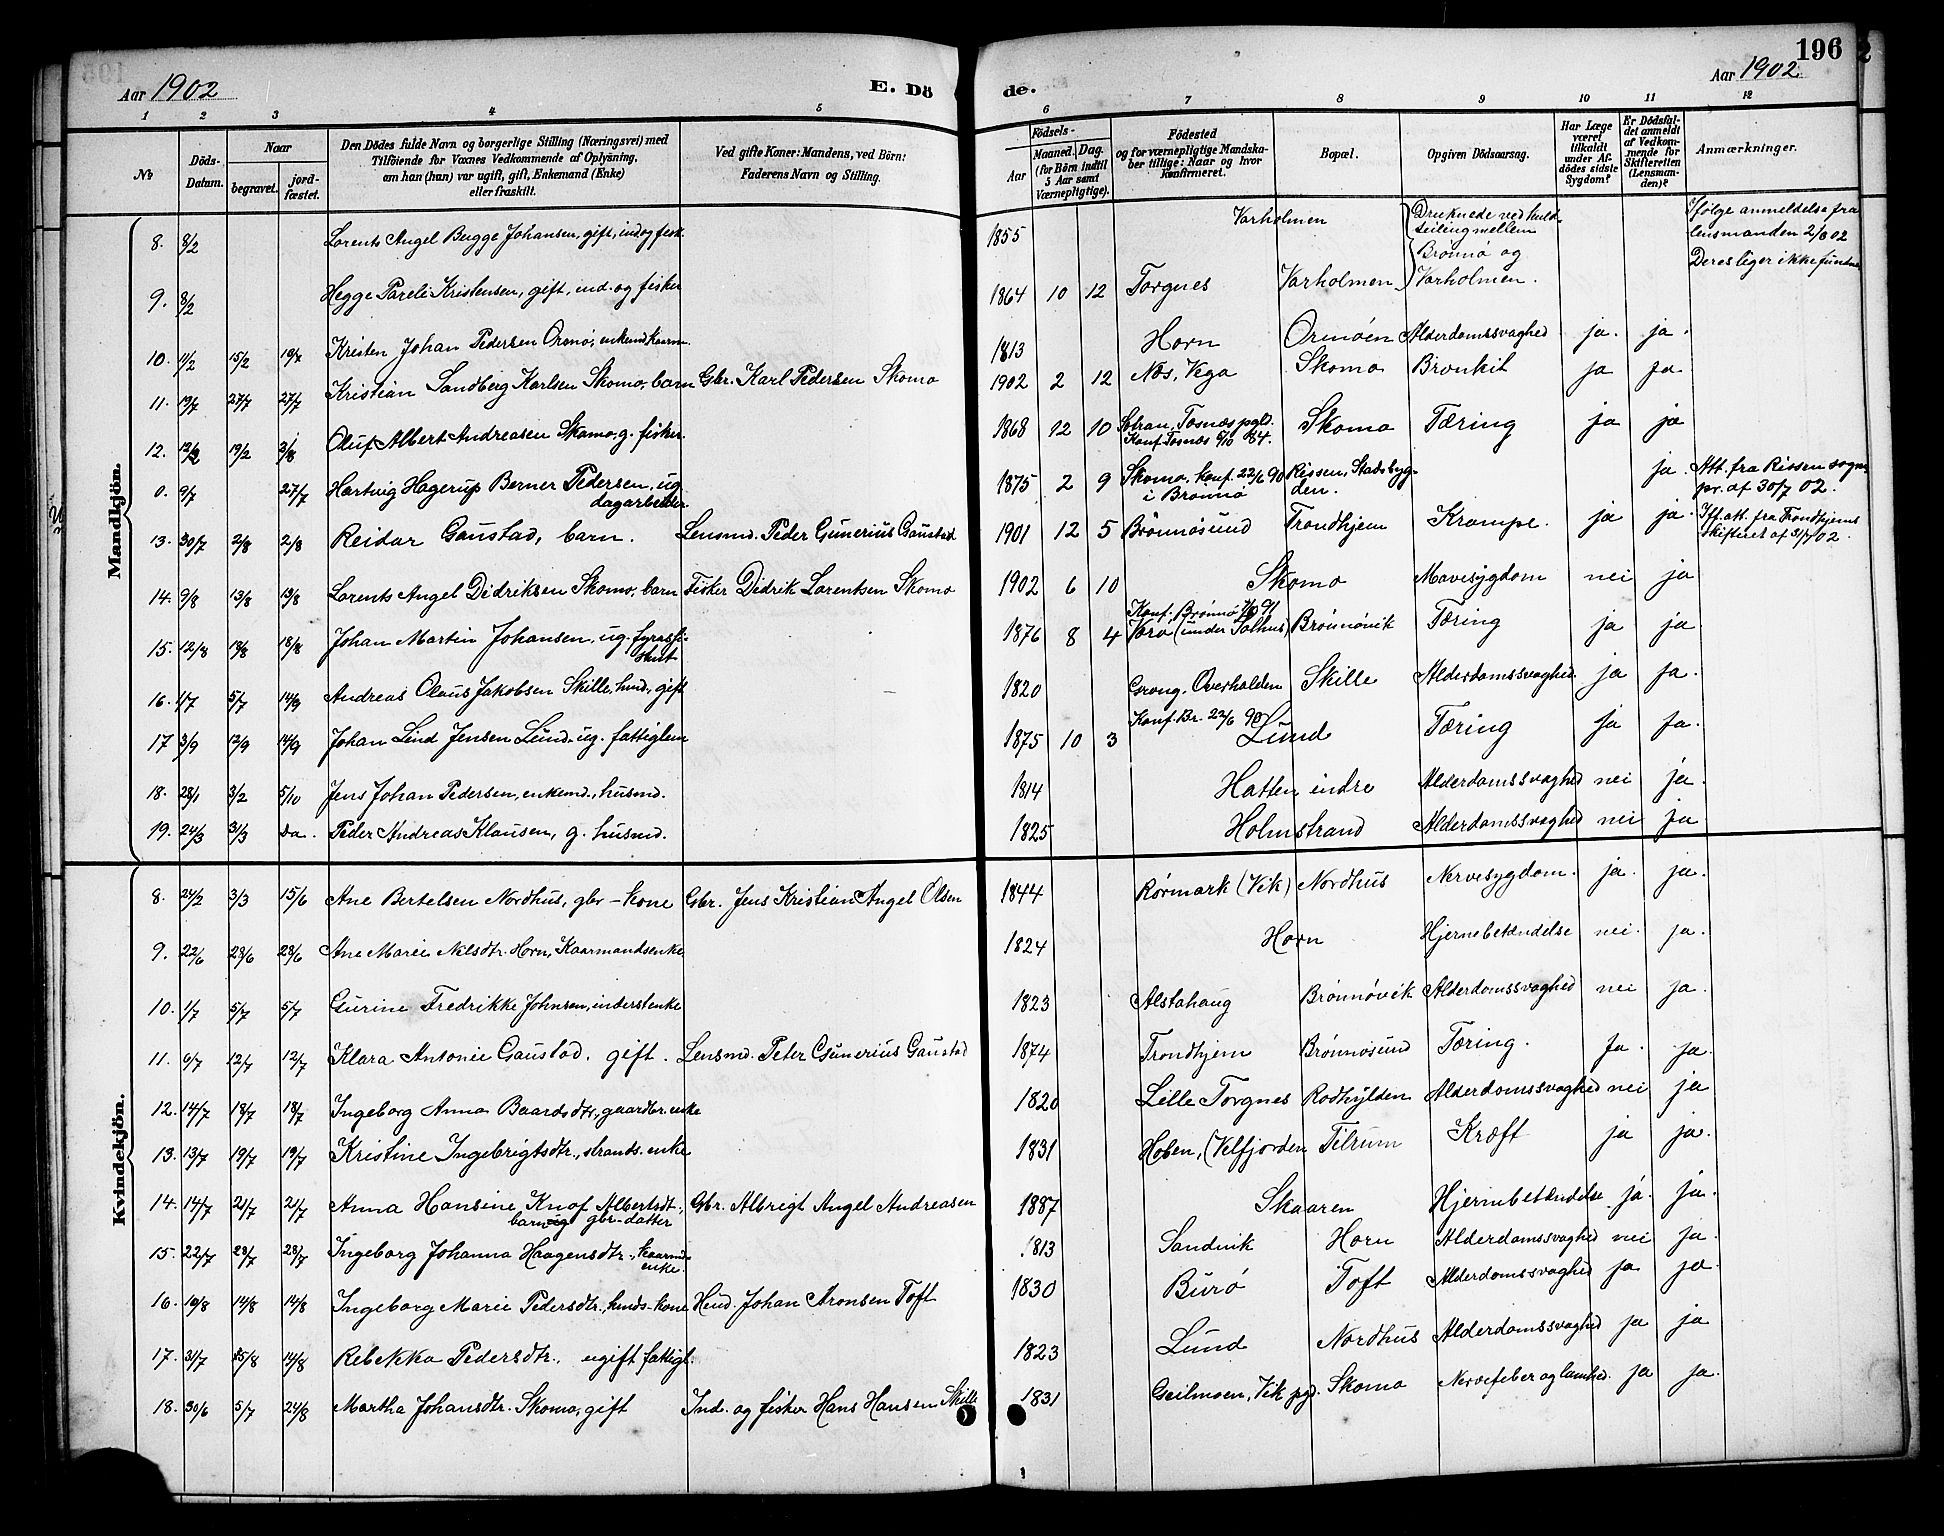 196
Aar 1902
E. Dö
de.
Aar 1902
1 2 3 4 5 6 7 8 9 10 11 12
No
Döds-Datum.
Naar
begravet.
jord-fæstet.
Den Dödes fulde Navn og borgerlige Stilling (Næringsvei) med
Tilföiende for Voxnes Vedkommende af Oplysning,
om han (hun) var ugift, gift, Enkemand (Enke)
eller fraskilt.
Ved gifte Koner: Mandens, ved Börn:
Faderens Navn og Stilling.
Födsels-
Aar
Maaned. Dag.
(for Börn indtil
5 Aar samt
Værnepligtige).
Födested
og for værnepligtige Mandska-
ber tillige: Naar og hvor
konfirmeret.
Bopæl.
Opgiven Dödsaarsag.
Har Læge
været
tilkaldt
under Af-
dödes sidste
Sygdom?
Er Dödsfal-
det anmeldt
af Vedkom-
mende for
Skifteretten
(Lensman-
den)?
Anmærkninger.
Mandkjön.
8. 8/2 Lorents Angel Bugge Johansen, gift, ind og fisk. 1855 Varholmen Druknede ved kuld-seiling mellem Brønnø og Varholmen. Ifølge anmeldelse fra lensmanden 2/8 02 Deres liger ikke fundne
9. 8/2 Hegge Pareli Kristensen, gift, ind. og fisker 1864 10 12 Torgnes Varholmen
10. 11/2 15/2 Kristen Johan Pedersen Ormø, enkemd kaarm. 1813 Horn Ormøen Alderdomssvaghed ja. ja.
11. 19/7 27/7 27/7 Kristian Sandberg Karlsen Skomo, barn Gbr. Karl Pedersen Skomo 1902 2 12 Nos, Vega Skomo Bronkit ja ja
12. 12/2 19/2 3/8 Oluf Albert Andreasen Skomo, g. fisker. 1868 12 10 Solran, Fosnæs pgld. Konf. Fosnæs 84. Skomo Tæring ja ja
0. 9/7 27/7 Hartvig Hagerup Berner Pedersen, ug. dagarbeider 1875 2 9 Skomo, konf. 22/6 90 i Brønnø Rissen, Stadsbyg-den. ja. Att. fra Rissen sogne-pr. af 30/7 02.
13. 30/7 2/8 2/8 Reidar Gaustad, barn. Lensmd. Peder Gunerius Gaustad 1901 12 5 Brønnøsund Trondhjem Krampe. ja ja. Ifl. att. fra Trondhjems skifteret af 31/7 02.
14. 9/8 13/8 13/8 Lorents Angel Didriksen Skomo, barn Fisker Didrik Lorentsen Skomo 1902 6 10 Skomo Mavesygdom nei ja
15. 12/8 18/8 18/8 Johan Martin Johansen, ug. 1876 8 4 Konf. Brønnø 91 Varo (under Tolhus) Brønnøvik Tæring ja ja
16. 1/7 5/7 14/9 Andreas Olaus Jakobsen Skille, husd., gift 1820 Grong, Overhalden Skille Alderdomssvaghed. ja ja.
17 3/9 12/9 14/9 Johan Lind Jensen Lund, ug. fattiglem 1875 10 3 Konf. Br. 22/6 90 Lund Tæring ja ja.
18. 28/1 3/2 5/10 Jens Johan Pedersen, enkemd., husmd. 1814 Hatten indre Alderdomssvaghed nei ja.
19. 24/3 31/3 Da. Peder Andreas Klausen, g. husmd. 1825 Holmstrand Alderdomssvaghed nei ja
Kvindekjön.
8. 24/2 3/3 15/6 Ane Bertelsen Nordhus, gbr-kone Gbr. Jens Kristian Angel Olsen 1844 Rørmark (Vik) Nordhus Nervesygdom. ja. ja.
9. 22/6 28/6 28/6 Ane Marie Nilsdtr. Horn, Kaarmandsenke 1824 Horn Hjernebetændelse nei. ja.
10. 1/7 5/7 5/7 Gurine Fredrikke Johnsen, inderstenke 1823 Alstahaug Brønnøvik Alderdomssvaghed nei ja.
11. 6/7 12/7 12/7 Klara Antonie Gaustad, gift. Lensmd. Peter Gunerius Gaustad 1874 Trondhjem Brønnøsund Tæring. Ja. ja.
12. 14/7 18/7 18/7 Ingeborg Anna Baardsdtr, gaardbr. enke 1820 Lille Torgnes Rodhylden Alderdomssvaghed nei ja
13. 13/7 19/7 19/7 Kristine Ingebrigtsdtr., strands. enke 1831 Hoben, (Velfjorden Tilrum Kræft ja ja.
14. 14/7 21/7 21/7 Anna Hansine Knof Albertsdt., gbr-datter Gbr. Albrigt Angel Andreasen 1887 Skaaren Hjernebetændelse ja. ja.
15. 22/7 28/7 28/7 Ingeborg Johanna Haagensdtr., kaarmd-enke. 1813 Sandvik Horn Alderdomssvaghed nei ja.
16. 10/8 14/8 14/8 Ingeborg Marie Pedersdtr., husds-kone Husd. Johan Aronsen Toft 1830 Burø Toft Alderdomssvaghed ja ja.
17. 31/7 5/8 14/8 Rebekka Pedersdtr., ugift fattigl. 1823 Lund Nordhus Alderdomssvaghed ja ja
18. 30/6 5/7 24/8 Martha Johansdtr. Skomo, gift Ind. og fisker Hans Hansen Skille 1831 Geilmoen, Vik pgd. Skomo Nervefeber og lamhed. ja ja.